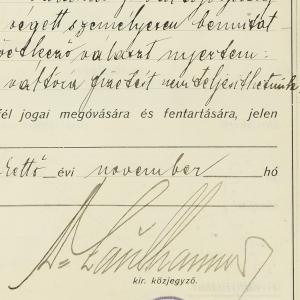 végett személyesen bemutat
következő választ nyertem:
váltóra fizetést nem teljesíthetünk
fél jogai megóvására és fentartására, jelen
kettő évi november hó
kir. közjegyző.